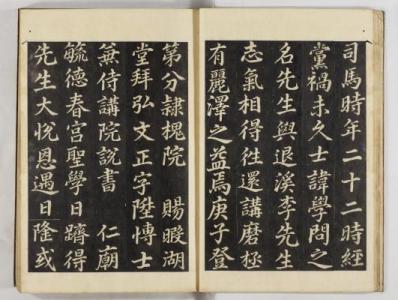 司馬時年二十二時經
黨禍未久士諱學問之
名先生與退溪李先生
志氣相得徃還講磨極
有麗澤之益焉庚子登
第分隷槐院　賜暇湖
堂拜弘文正字陞博士
兼侍講院說書　仁廟
毓德春宮聖學日躋得
先生大悅恩遇日隆或